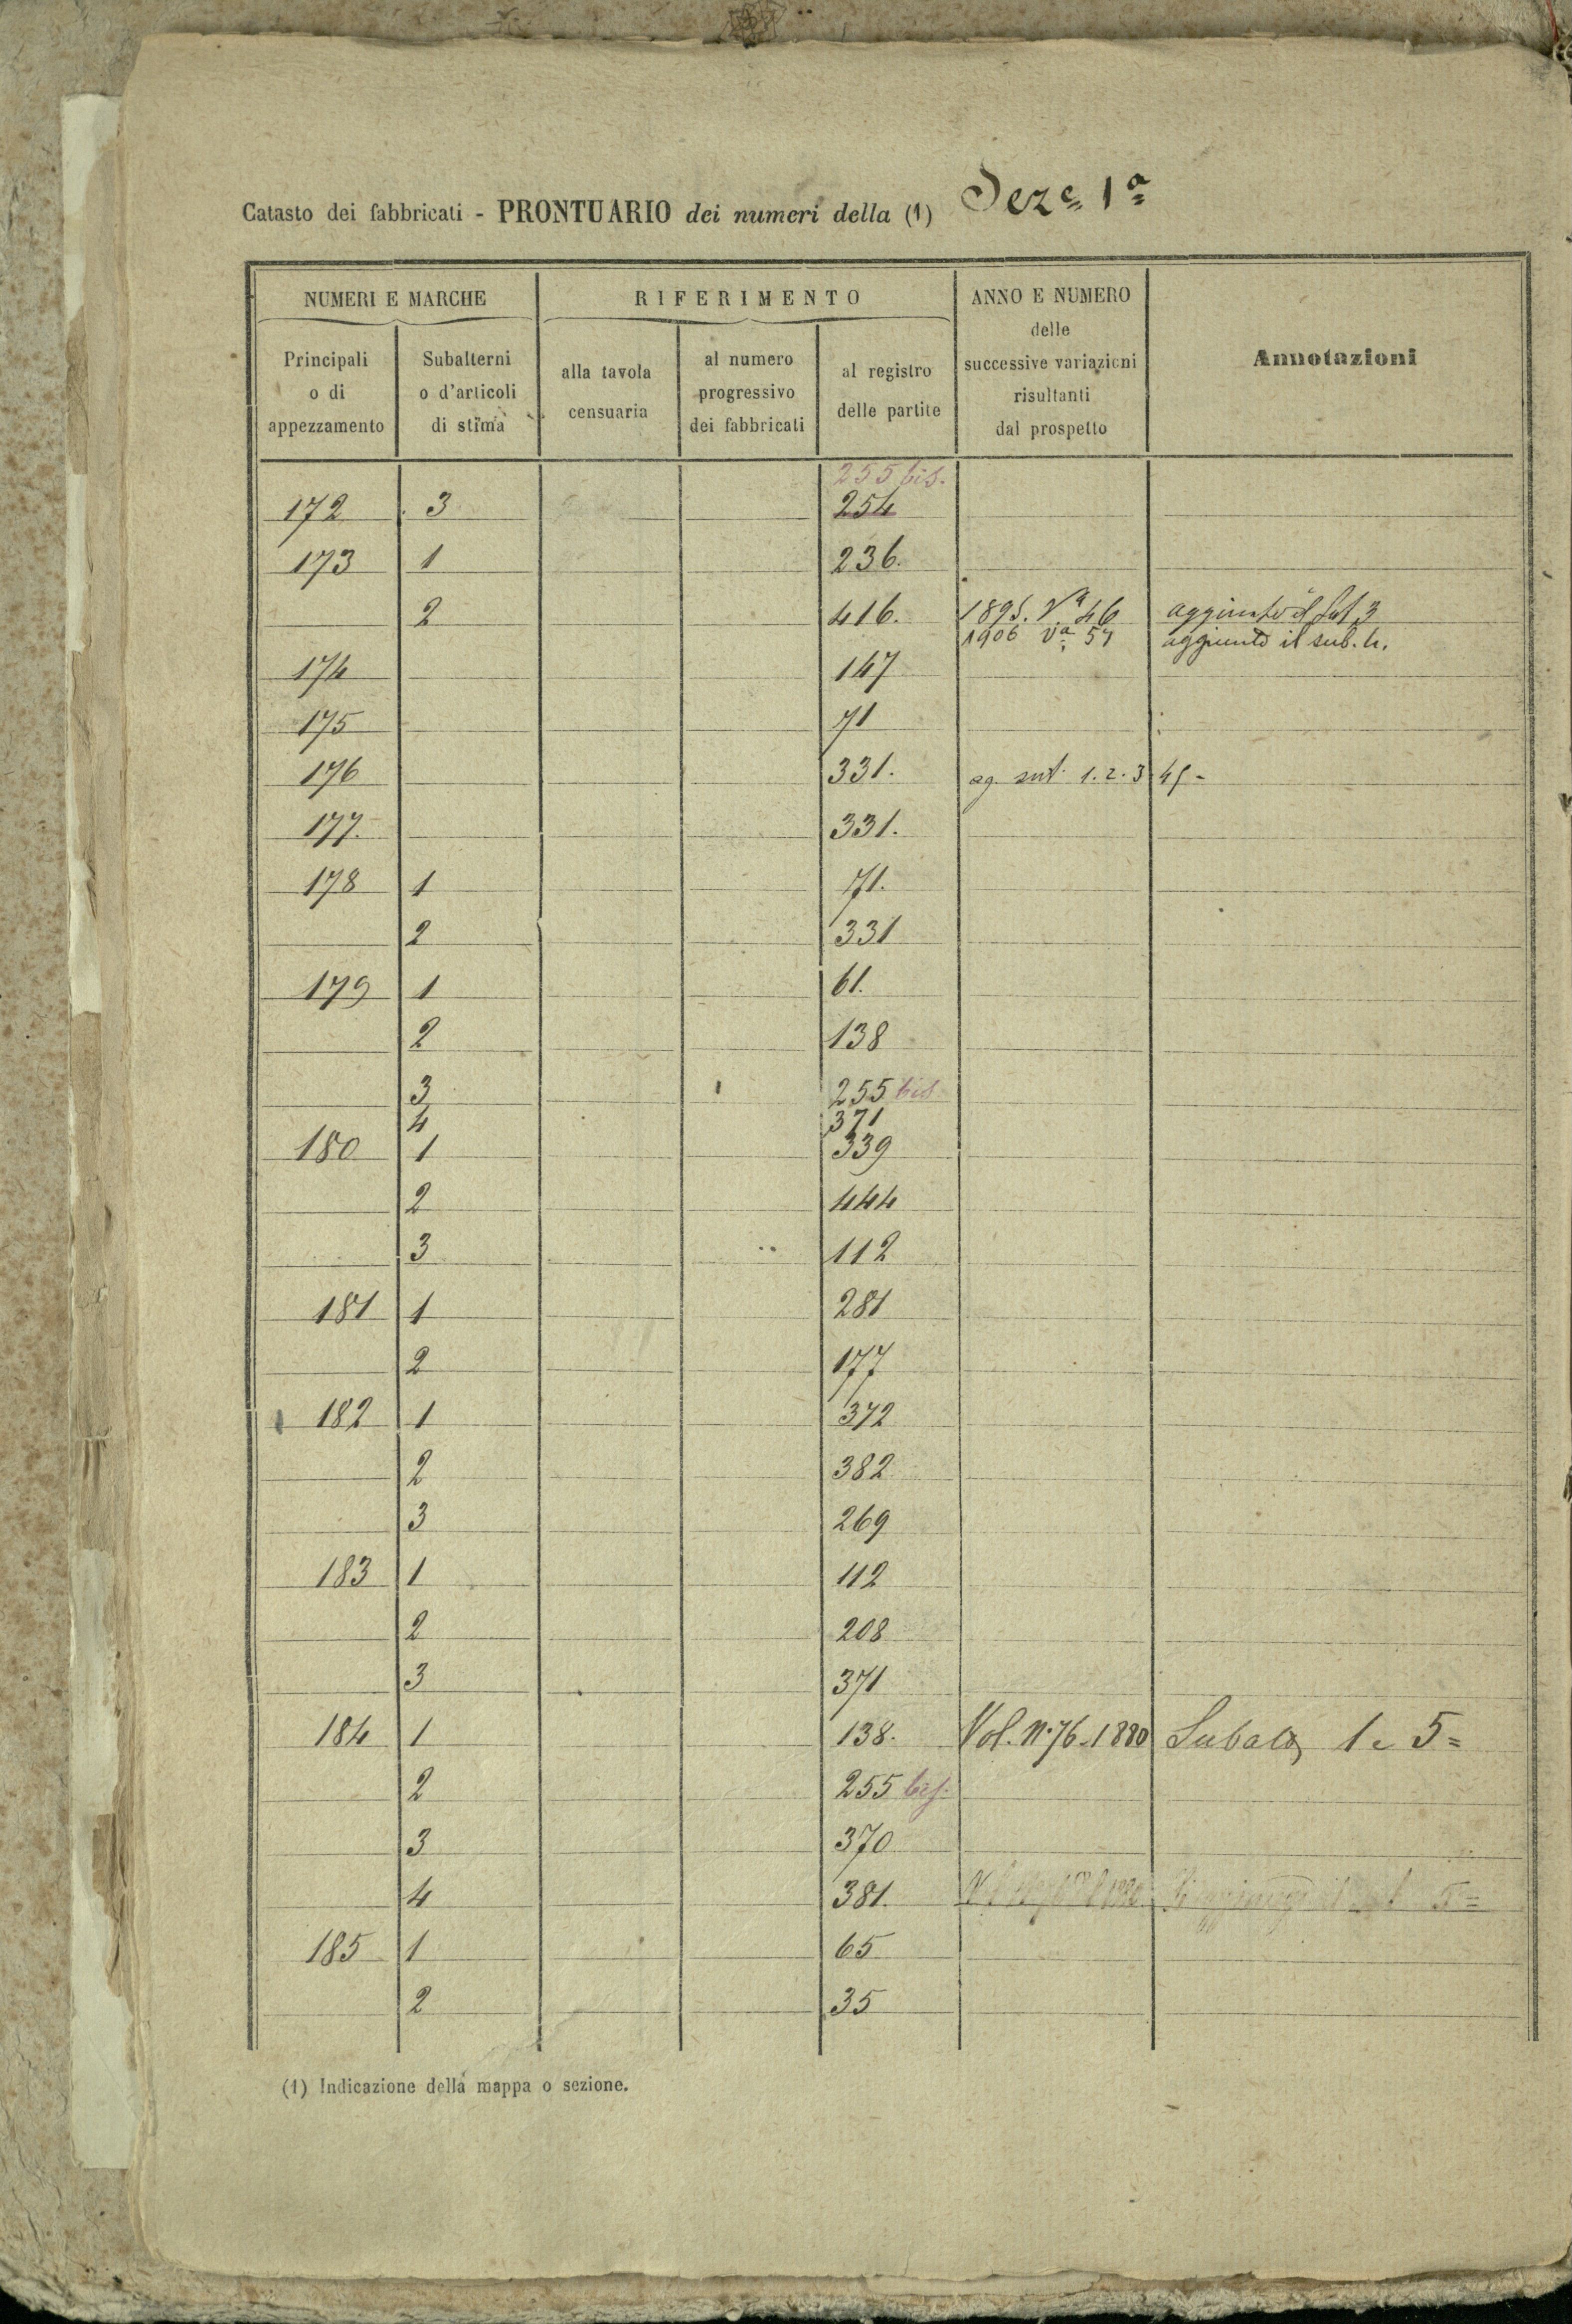 Catasto dei fabbricati - PRONTUARIO dei numeri della (1) Seze 1a
NUMERI E MARCHE RIFERIMENTO ANNO E NUMERO delle successive variazioni risultanti dal prospetto Annotazioni
Principali o di appezzamento Subalterni o d'articoli di stima alla tavola censuaria al numero progressivo dei fabbricati al registro delle partite
255 bis.
172 3 254
173 1 236.
2 416. 1895. Va 46 aggiunto il sub 3
1906 Va 57 aggiunto il sub. 4.
174 147
175 71
176 331. ag. 1. 2. 3 45 -
177. 331.
178 1 71.
2 331
179 1 61.
2 138
3 255 bis
4 371
180 1 339
2 444
3 112
181 1 281
2 177
182 1 372
2 382
3 269
183 1 112
2 208
3 371
184 1 138. Vol. N. 76 - 1880 1 e 5 =
2 255 bis.
3 370
4 381. 5 =
185 1 65
2 35
(1) Indicazione della mappa o sezione.